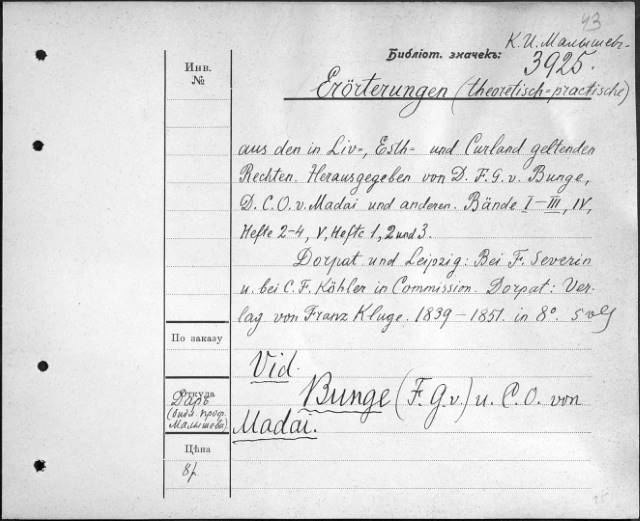 43
К. И. Малышевъ
Библіот. значекъ:
3925.
Инв.
№
Erörterungen (theoretisch-practische)
aus den in Liv-, Esth- und Curland geltenden
Rechten. Herausgegeben von D. F. G. v. Bunge,
D. C. O. v. Madai und anderen. Bände I–III, IV,
Hefte 2-4, V, Hefte 1, 2 und 3.
Dorpat und Leipzig: Bei F. Severin
u. bei C. F. Köhler in Commission. Dorpat: Ver-
lag von Franz Kluge. 1839–1851. in 8°. 5 vol
По заказу
Vid.
Bunge (F. G. v.) u. C. O. von
Madai.
Откуда
Даръ
проф.
Малышева)
Цѣна
8р